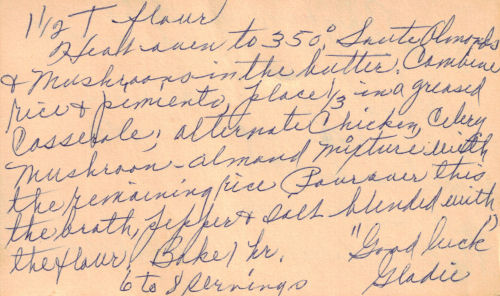 1 1/2 T flour
Heat oven to 350°. Saute Almonds
& Mushrooms in the butter. Combine
rice & pimiento, place 1/3 in a greased
Casserole; alternate Chicken, Celery
Mushroom-almond mixture with
the remaining rice Pour over this
the broth, pepper & salt blended with
the flour. Bake 1 hr. "Good luck"
6 to 8 servings Gladie